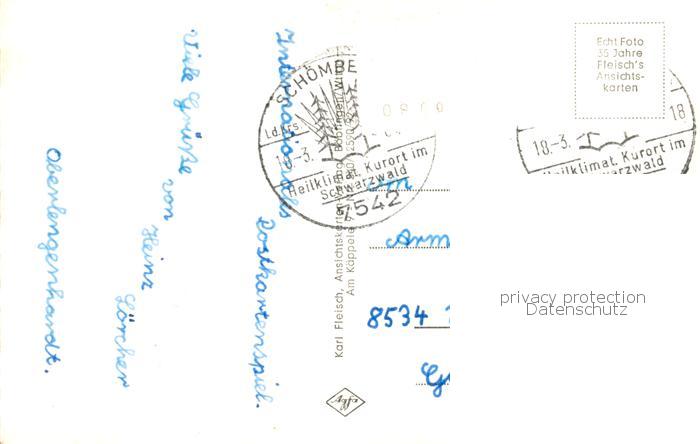 Internationales Postkartenspiel.
Viele Grüße von Heinz Lörcher
Oberlengenhardt.
Karl Fleisch, Ansichtskarten
Am Käppele
SCHÖMBE
Ld.Krs.
18.-3.
Heilklimat. Kurort im
Schwarzwald
7542
Echt Foto
35 Jahre
Fleisch's
Ansichts-
karten
18.-3.
18
Heilklimat. Kurort im
Schwarzwald
Arm
8534
privacy protection
Datenschutz